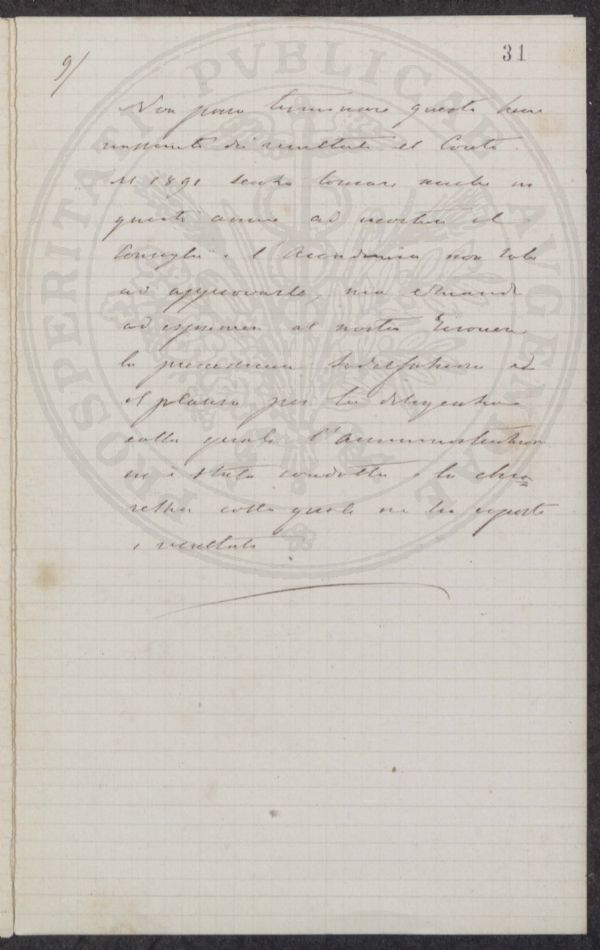 31
9/
Non posso terminare questo breve
riassunto dei resultati del Conto
del 1891 senza tornare anche in
quest'anno ad esortare il
Consiglio e l'Accademia non solo
ad approvarlo, ma eziandio
ad esprimere al nostro
la sodisfazione ed
il plauso per la diligenza
colla quale l'amministrazione
ne è stata condotta e la chia=
rezza colla quale ne ha esposto
i resultati.
PROSPERITATI PUBLICAE AUGENDAE